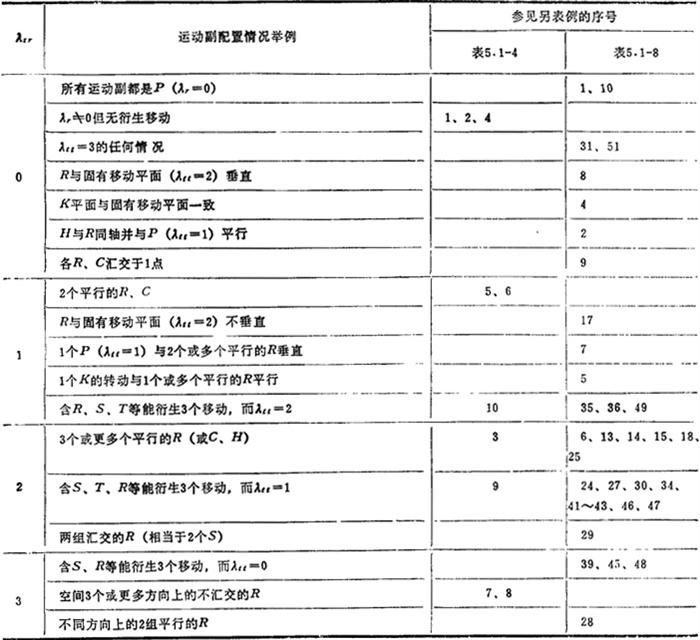 λtr 运动副配置情况举例 参见另表例的序号
表5.1-4 表5.1-8
0
所有运动副都是P（λr=0） 1、10
λr≒0但无衍生移动 1、2、4
λtt=3的任何情况 31、51
R与固有移动平面（λtt=2）垂直 8
K平面与固有移动平面一致 4
H与R同轴并与P（λtt=1）平行 2
各R、C汇交于1点 9
1
2个平行的R、C 5、6
R与固有移动平面（λtt=2）不垂直 17
1个P（λtt=1）与2个或多个平行的R垂直 7
1个K的转动与1个或多个平行的R平行 5
含R、S、T等能衍生3个移动，而λtt=2 10 35、36、49
2
3个或更多个平行的R（或C、H） 3 6、13、14、15、18、
25
含S、T、R等能衍生3个移动，而λtt=1 9 24、27、30、34、
41～43、46、47
两组汇交的R（相当于2个S） 29
3
含S、R等能衍生3个移动，而λtt=0 39、45、48
空间3个或更多方向上的不汇交的R 7、8
不同方向上的2组平行的R 28